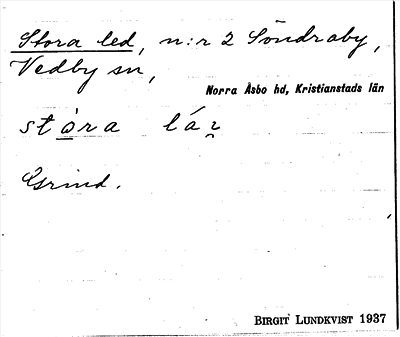 Stora led, n:r 2 Söndraby,
Vedby sn,
Norra Åsbo hd, Kristianstads län
stóra lá
Grind.
BIRGIT LUNDKVIST 1937